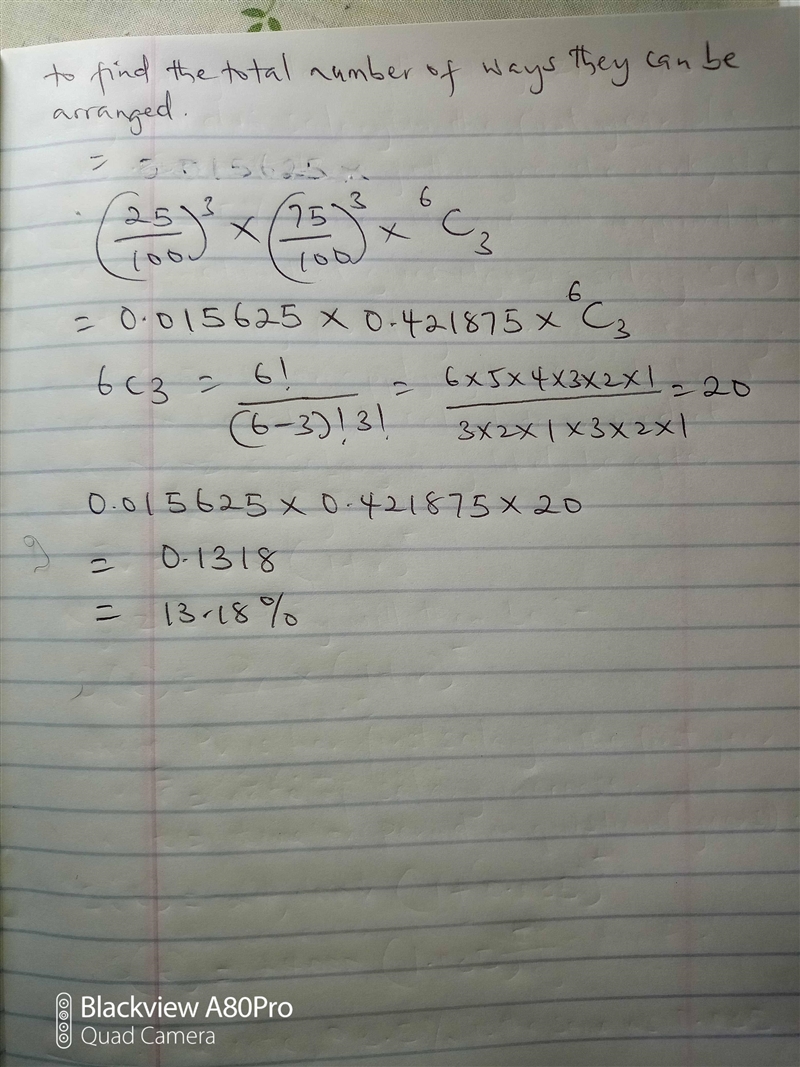 to find the total number of ways they can be
arranged.
=
(25/100)^3 × (75/100)^3 × ^6C_3
= 0.015625 × 0.421875 × ^6C_3
6C3 = 6!/(6-3)!3! = 6×5×4×3×2×1/3×2×1×3×2×1 = 20
0.015625 × 0.421875 × 20
= 0.1318
= 13.18%
Blackview A80Pro
Quad Camera